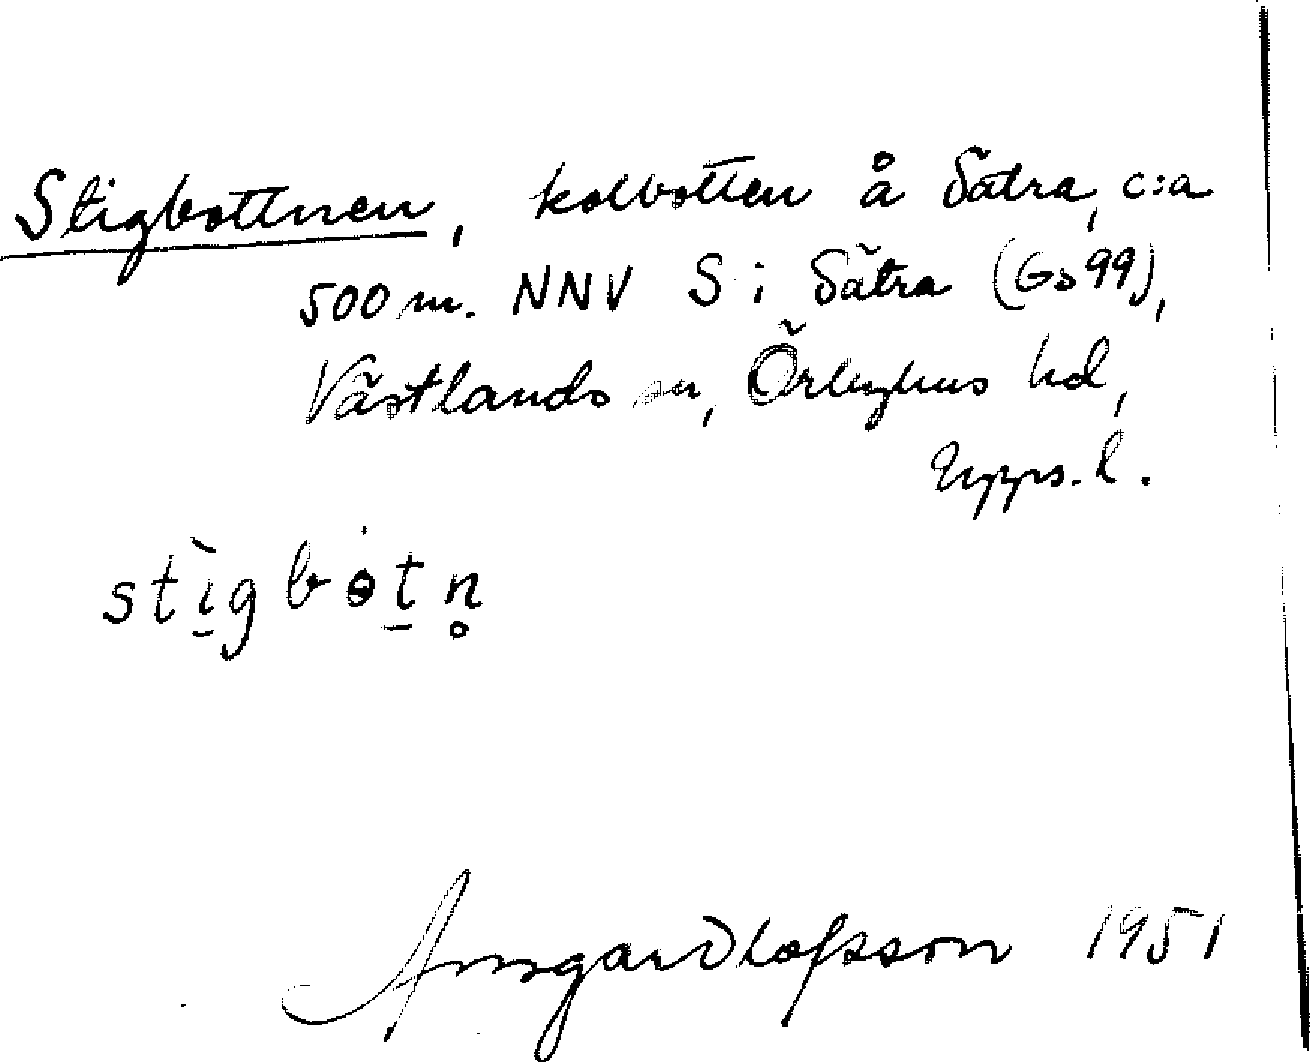 Stigbottnen, kolbotten å Sätra, c:a
500 m. NNV S i Sätra (Gs 99),
Västlands sn, Örbyhus hd,
Upps. l.
stìgbòtn̥
Ansgar Olofsson 1951